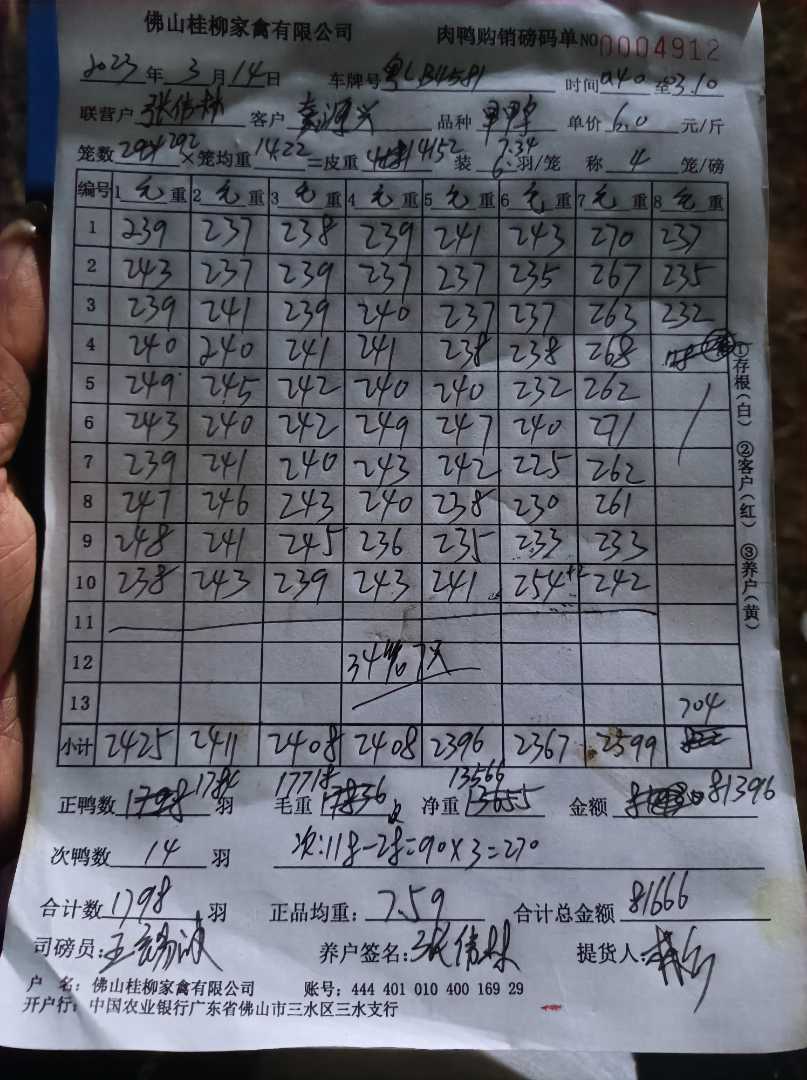 佛山桂柳家禽有限公司 肉鸭购销磅码单 NO 0004912
2023年3月14日 车牌号 粤LB4581 时间 0.40 至 3.10
联营户 张伟林 客户 兴 品种 鸭 单价 6.0 元/斤
笼数 292 ×笼均重 14.22 =皮重 4152 装 7.34 6 羽/笼 称 4 笼/磅
编号 1 毛 重 2 毛 重 3 毛 重 4 毛 重 5 毛 重 6 毛 重 7 毛 重 8 毛 重
1 239 237 238 239 241 243 270 237
2 243 237 239 237 237 235 267 235
3 239 241 239 240 237 237 263 232
4 240 240 241 241 238 238 268
5 249 245 242 240 240 232 262
6 243 240 242 249 247 240 271
7 239 241 240 243 242 225 262
8 247 246 243 240 238 230 261
9 248 241 245 236 235 233 233
10 238 243 239 243 241 254 +2 242
11
12 34% 7天
13 704
小计 2425 2411 2408 2408 2396 2367 2599
正鸭数 1784 羽 毛重 17718 净重 13566 金额 81396
次鸭数 14 羽 次:11只-2只=90×3=270
合计数 1798 羽 正品均重: 7.59 合计总金额 81666
司磅员: 王 养户签名: 张伟林 提货人:
户 名: 佛山桂柳家禽有限公司 账号: 444 401 010 400 169 29
开户行: 中国农业银行广东省佛山市三水区三水支行
①存根(白) ②客户(红) ③养户(黄)